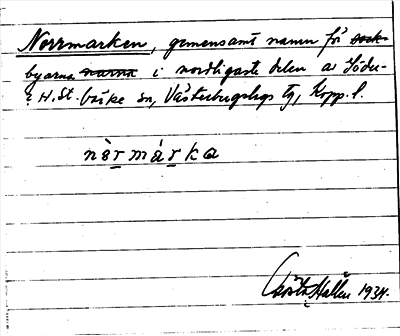 Norrmarken, gemensamt namn för sock-
byarna narna i nordligaste delen av Söder-
& H. St. bärke sn, Västerbergslags tg, Kopp. l.
nòrmárka
Gösta Hallén 1934.